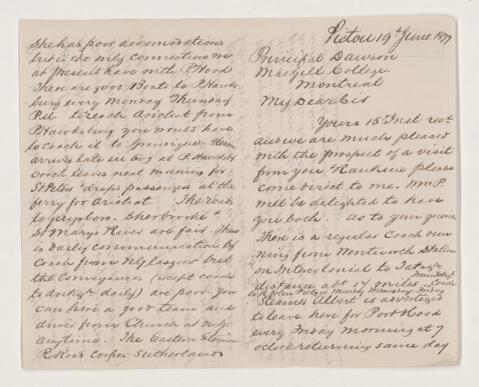 Pictou 19th June 1877
Principal Dawson
MacGill College
Montreal
My Dear Sir
Yours 15 Inst. recd
and we are much pleased
with the prospect of a visit
from you & please
come direct to me. Mrs P.
will be delighted to have
you both. As to your queries
There is a regular Coach run
ning from Wentworth Station
on Intercolonial to
distance abt 17 miles Coach
Monday Friday
Steamer Albert is advertized
to leave here for Port Hood
every Friday Morning at 7
oclock returning same day
She has poor accomodations
but is the only connection we
at present have with P. Hood
There are good Boats to P. Hawks
bury every Monday Thursday
P.M. To reach Arichat from
P. Hawksbury you would have
to coach it to
arrives late in evg at P. Hawksb
Coach leaves next morning for
St Peters drops passengers at the
ferry for Arichat The roads
to Guysboro. Sherbrooke &
St Marys River are fair. There
is daily communication by
Coach from N. Glasgow but
the Conveyances (except coach
to Antigh daily) are poor. You
can have a good team and
driver from Church at N.G.
anytime. The Eastern
R. Road Sutherland